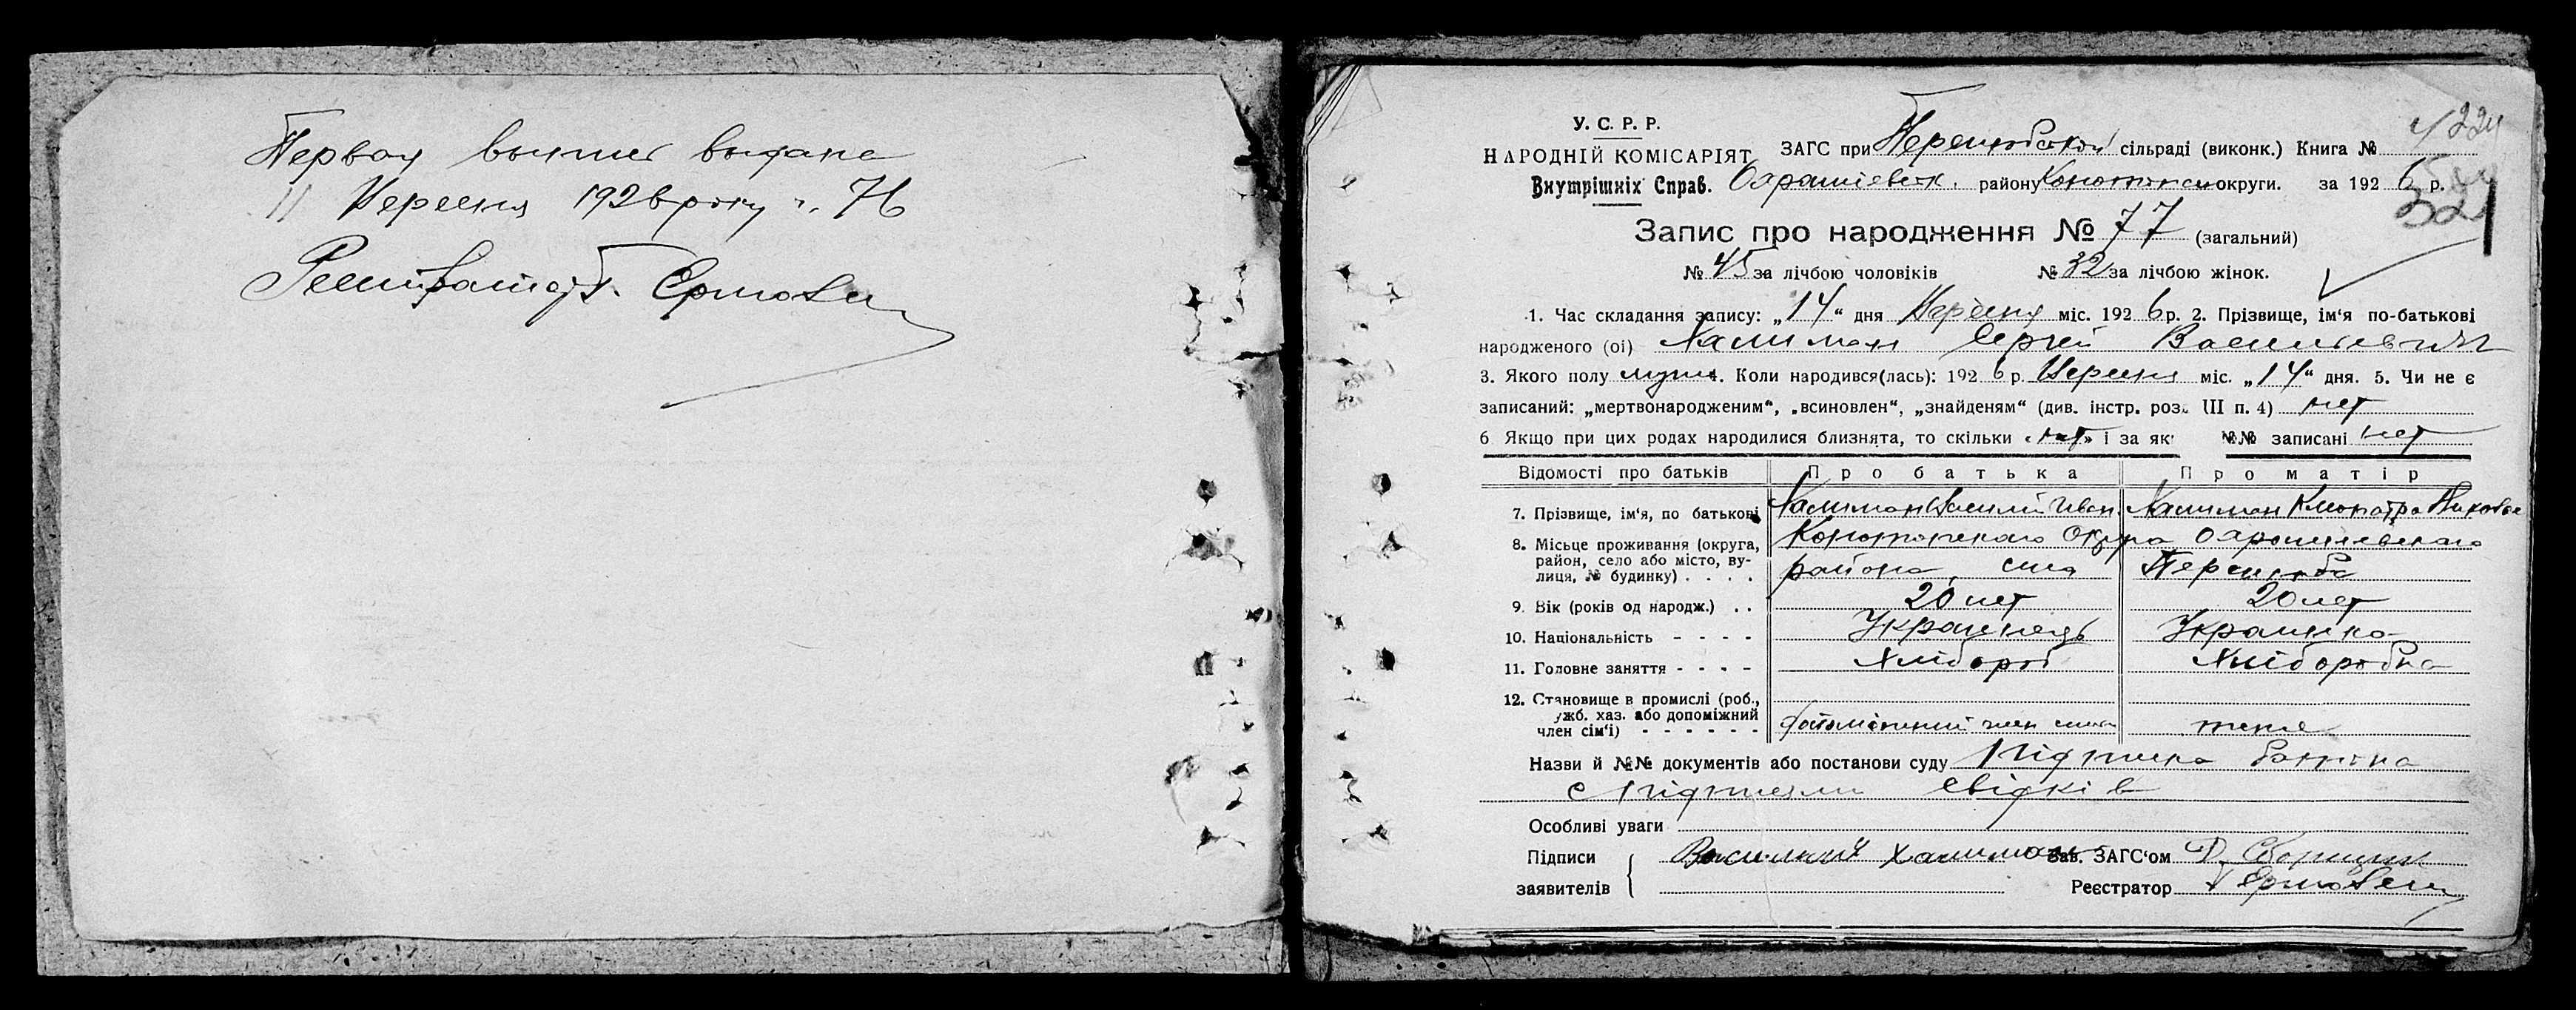 Первая выпись выдана
11 Вересня 1926 року № 76
Реєстратор
У. С. Р. Р.
НАРОДНІЙ КОМІСАРІЯТ
Внутрішніх Справ.
ЗАГС при сільраді (виконк.) Книга №
району Конотопськ округи. за 1926 р.
321
Запис про народження № 77 (загальний)
№ 45 за лічбою чоловіків № 32 за лічбою жінок.
1. Час складання запису: „14“ дня Вересня міс. 1926 р. 2. Прізвище, ім‘я по-батькові
народженого (ої) Халиман Сергей Васильевич
3. Якого полу муж. 4. Коли народився(лась): 1926 р. Вересня міс. „14“ дня. 5. Чи не є
записаний: „мертвонародженим“, „всиновлен“, „знайденям“ (див. інстр. розд. III п. 4) нет
6 Якщо при цих родах народилися близнята, то скільки «нет» і за як №№ записані нет
Відомості про батьків Про батька Про матір
7. Прізвище, ім‘я, по батькові Халиман Василий Иван. Халиман Клеопатра
8. Місьце проживання (округа, район, село або місто, вулиця, № будинку) Конотопского Округа
района, села
9. Вік (років од народж.) 20 лет 20 лет
10. Національність Украинець Украинка
11. Головне заняття Хлібороб Хліборобка
12. Становище в промислі (роб., служб. хаз. або допоміжний член сім‘ї) член
Назви й №№ документів або постанови суду Підписка батька
с підписями свідків
Особливі уваги
Підписи заявителів Халиман Зав. ЗАГС‘ом
Реєстратор